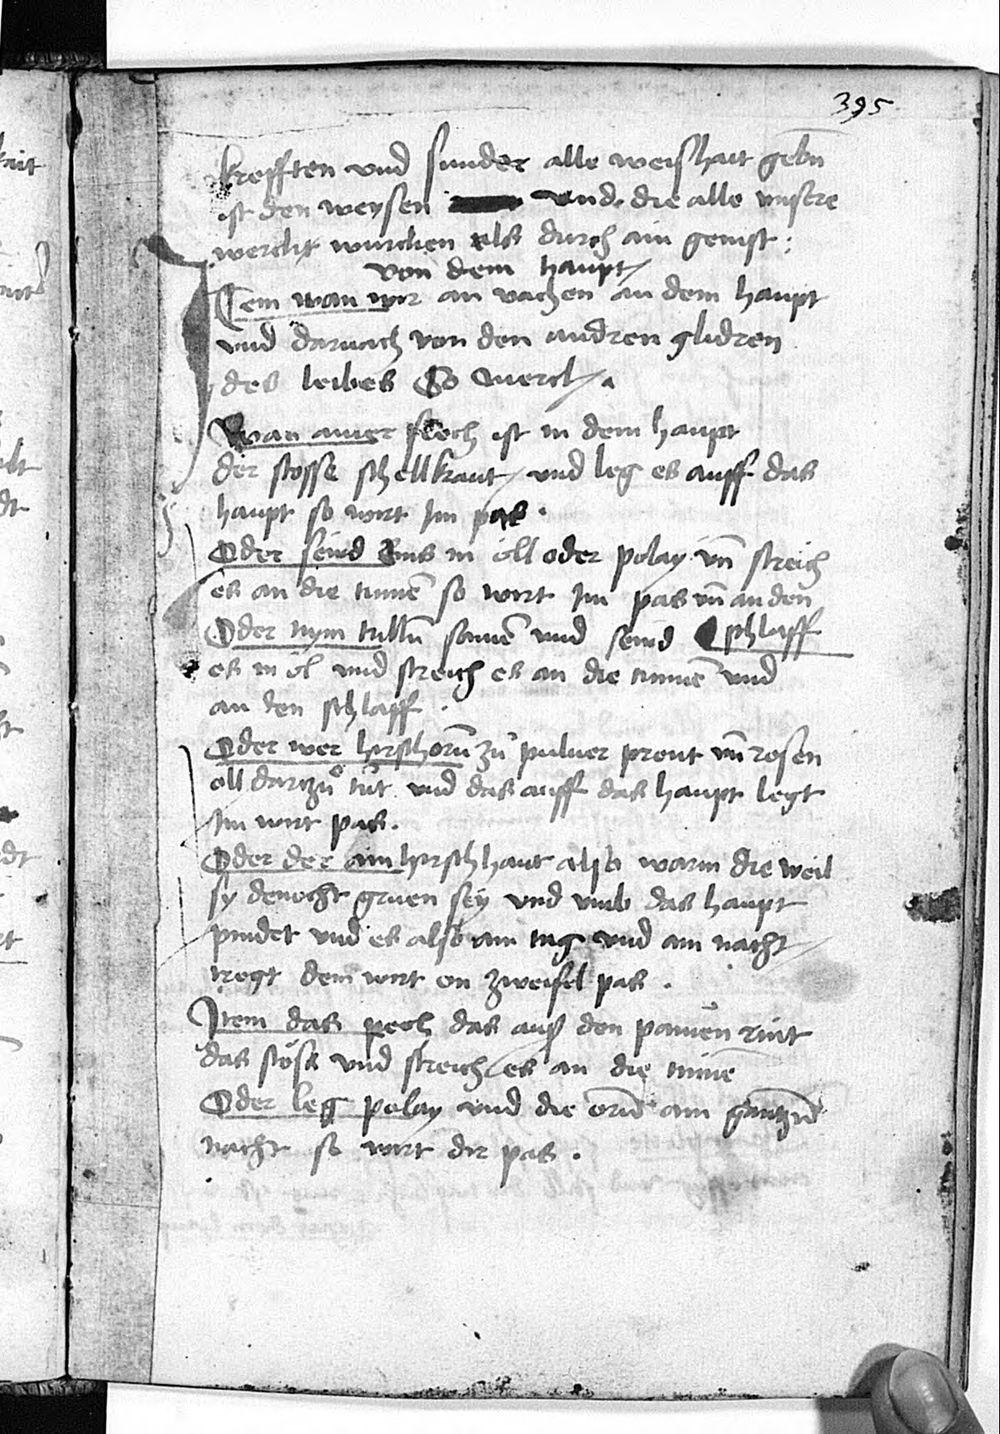 395
krefften vnd sunder alle weishait gebn
ist den weysen vnd die alle vnsere
werckt wurcken als durch ain geinst :
von dem haupt
Item wan wir an vachen an dem haupt
vnd darnach von den andren glidren
des leibes So merck
Wan ainer siech ist in dem haupt
der stosse schellkraut vnd leg es auff das
haupt so wirt im pas .
Oder seud Eins in öll oder polay vn̄ streich
es an die tinnē so wirt im pas vn̄ an den
Oder nym tilln̄ samē vnd seud schlaff
es in öl vnd streich es an die tinnē vnd
an den schlaff .
Oder wer hirschorn̄ zu puluer prent vn̄ rosen
oll darczuͦ tut vnd das auff das haupt legt
im wirt pas .
Oder der ain hirschhaut also warm die weil
sy dennocht gruen sey vnd vmb das haupt
pindet vnd es also ain tag vnd ain nacht
tregt dem wirt on zweifel pas .
Item das pech das auß den pamen rint
das stöss vnd streich es an die tinnē
Oder leg polay vnd die orn̄ ain gantzn̄
nacht so wirt dir pas .